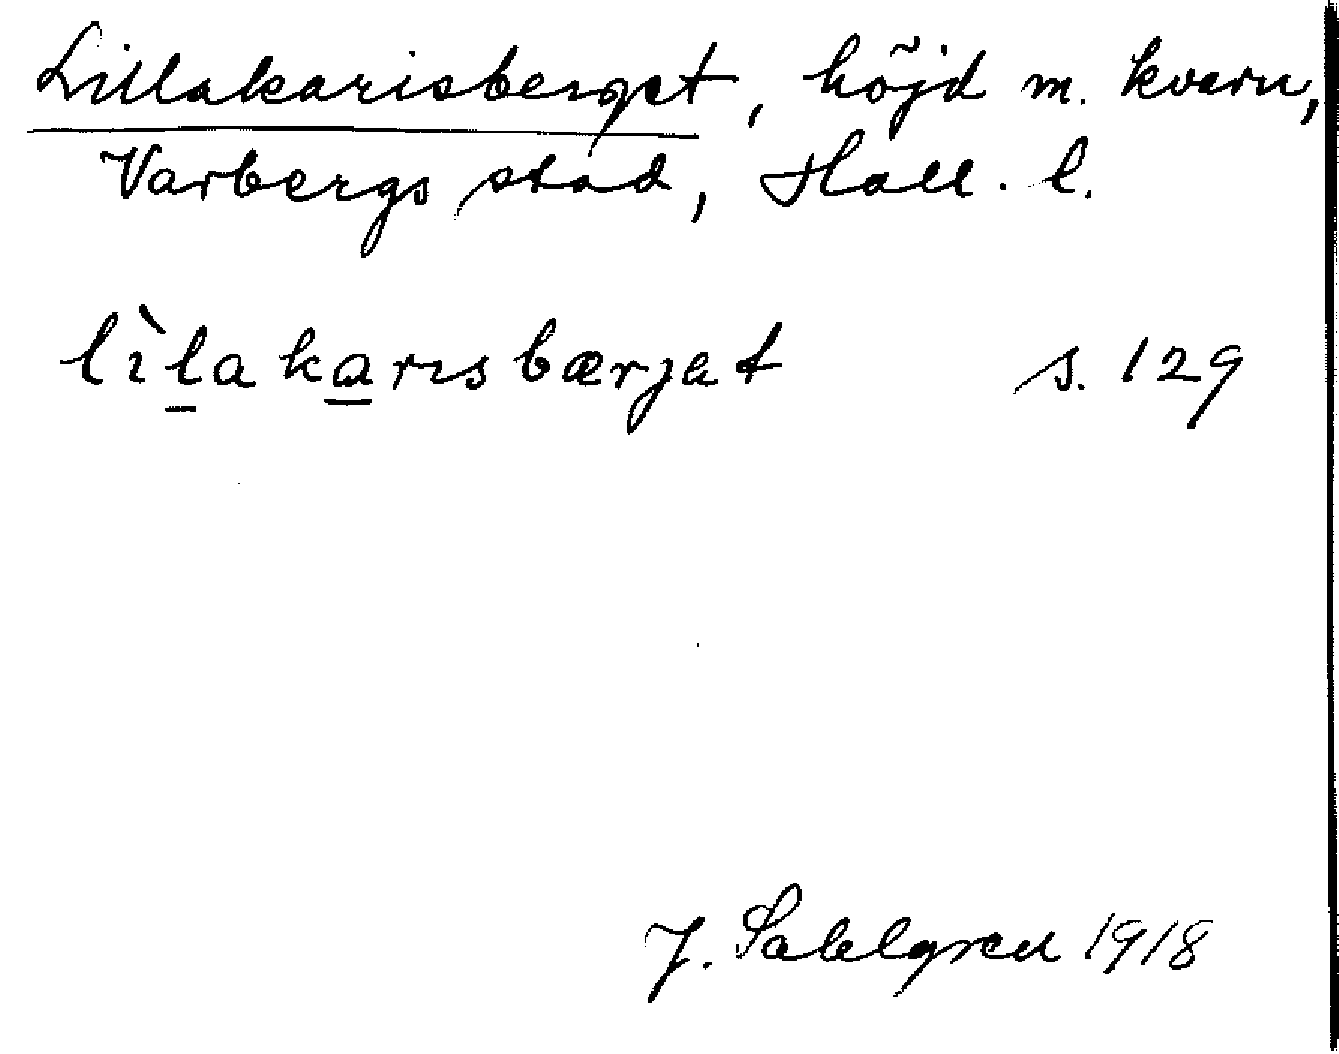 Lillakarisberget, höjd m. kvarn,
Varbergs stad, Hall. l.
lìla karısbærjat s. 129
J. Sahlgren 1918